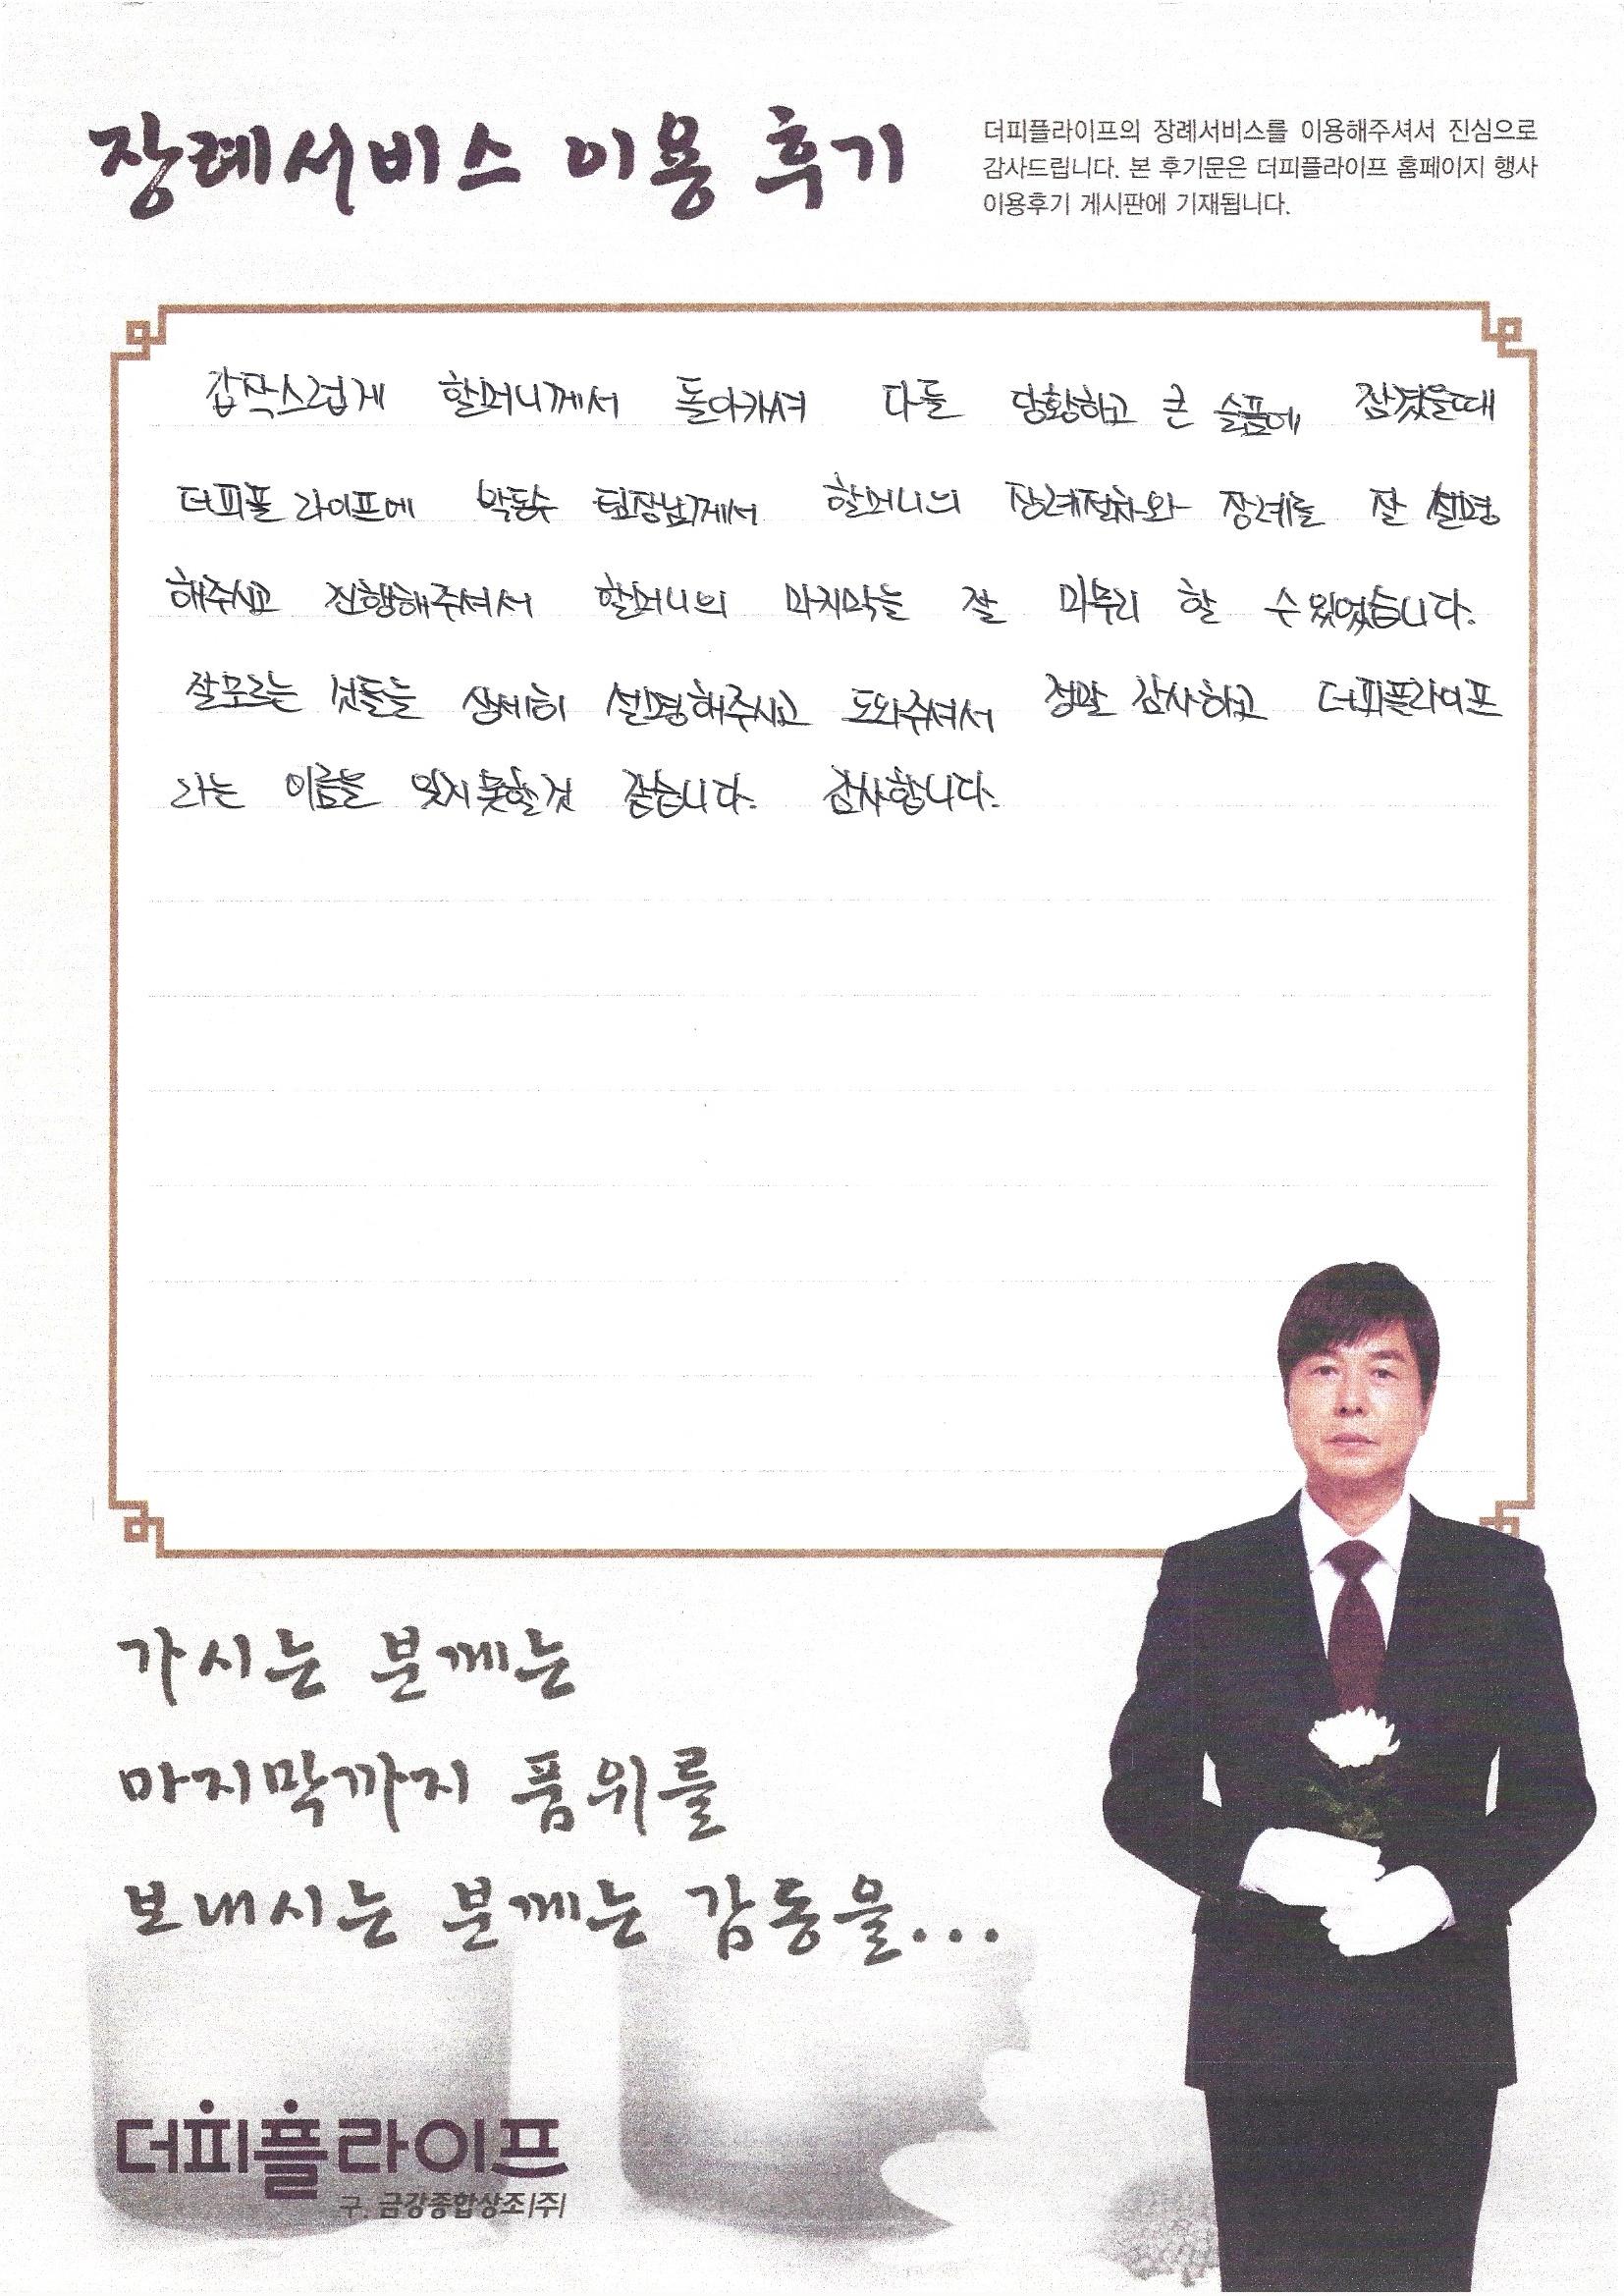 장례서비스 이용 후기
더피플라이프의 장례서비스를 이용해주셔서 진심으로
감사드립니다. 본 후기문은 더피플라이프 홈페이지 행사
이용후기 게시판에 기재됩니다.
갑작스럽게 할머니께서 돌아가셔 다들 당황하고 큰 슬픔에 잠겼을때
더피플 라이프에 박동수 팀장님께서 할머니의 장례절차와 장례를 잘 설명
해주시고 진행해주셔서 할머니의 마지막을 잘 마무리 할 수 있었습니다.
잘모르는 것들을 상세히 설명해주시고 도와주셔서 정말 감사하고 더피플라이프
라는 이름을 잊지 못할 것 같습니다. 감사합니다.
가시는 분께는
마지막까지 품위를
보내시는 분께는 감동을...
더피플라이프
구. 금강종합상조(주)